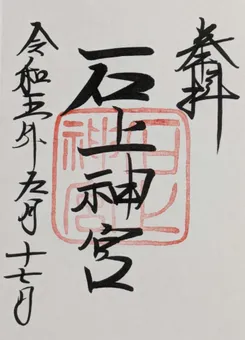 奉拝
石上神宮
令和五年
月
十七日
石上
神宮